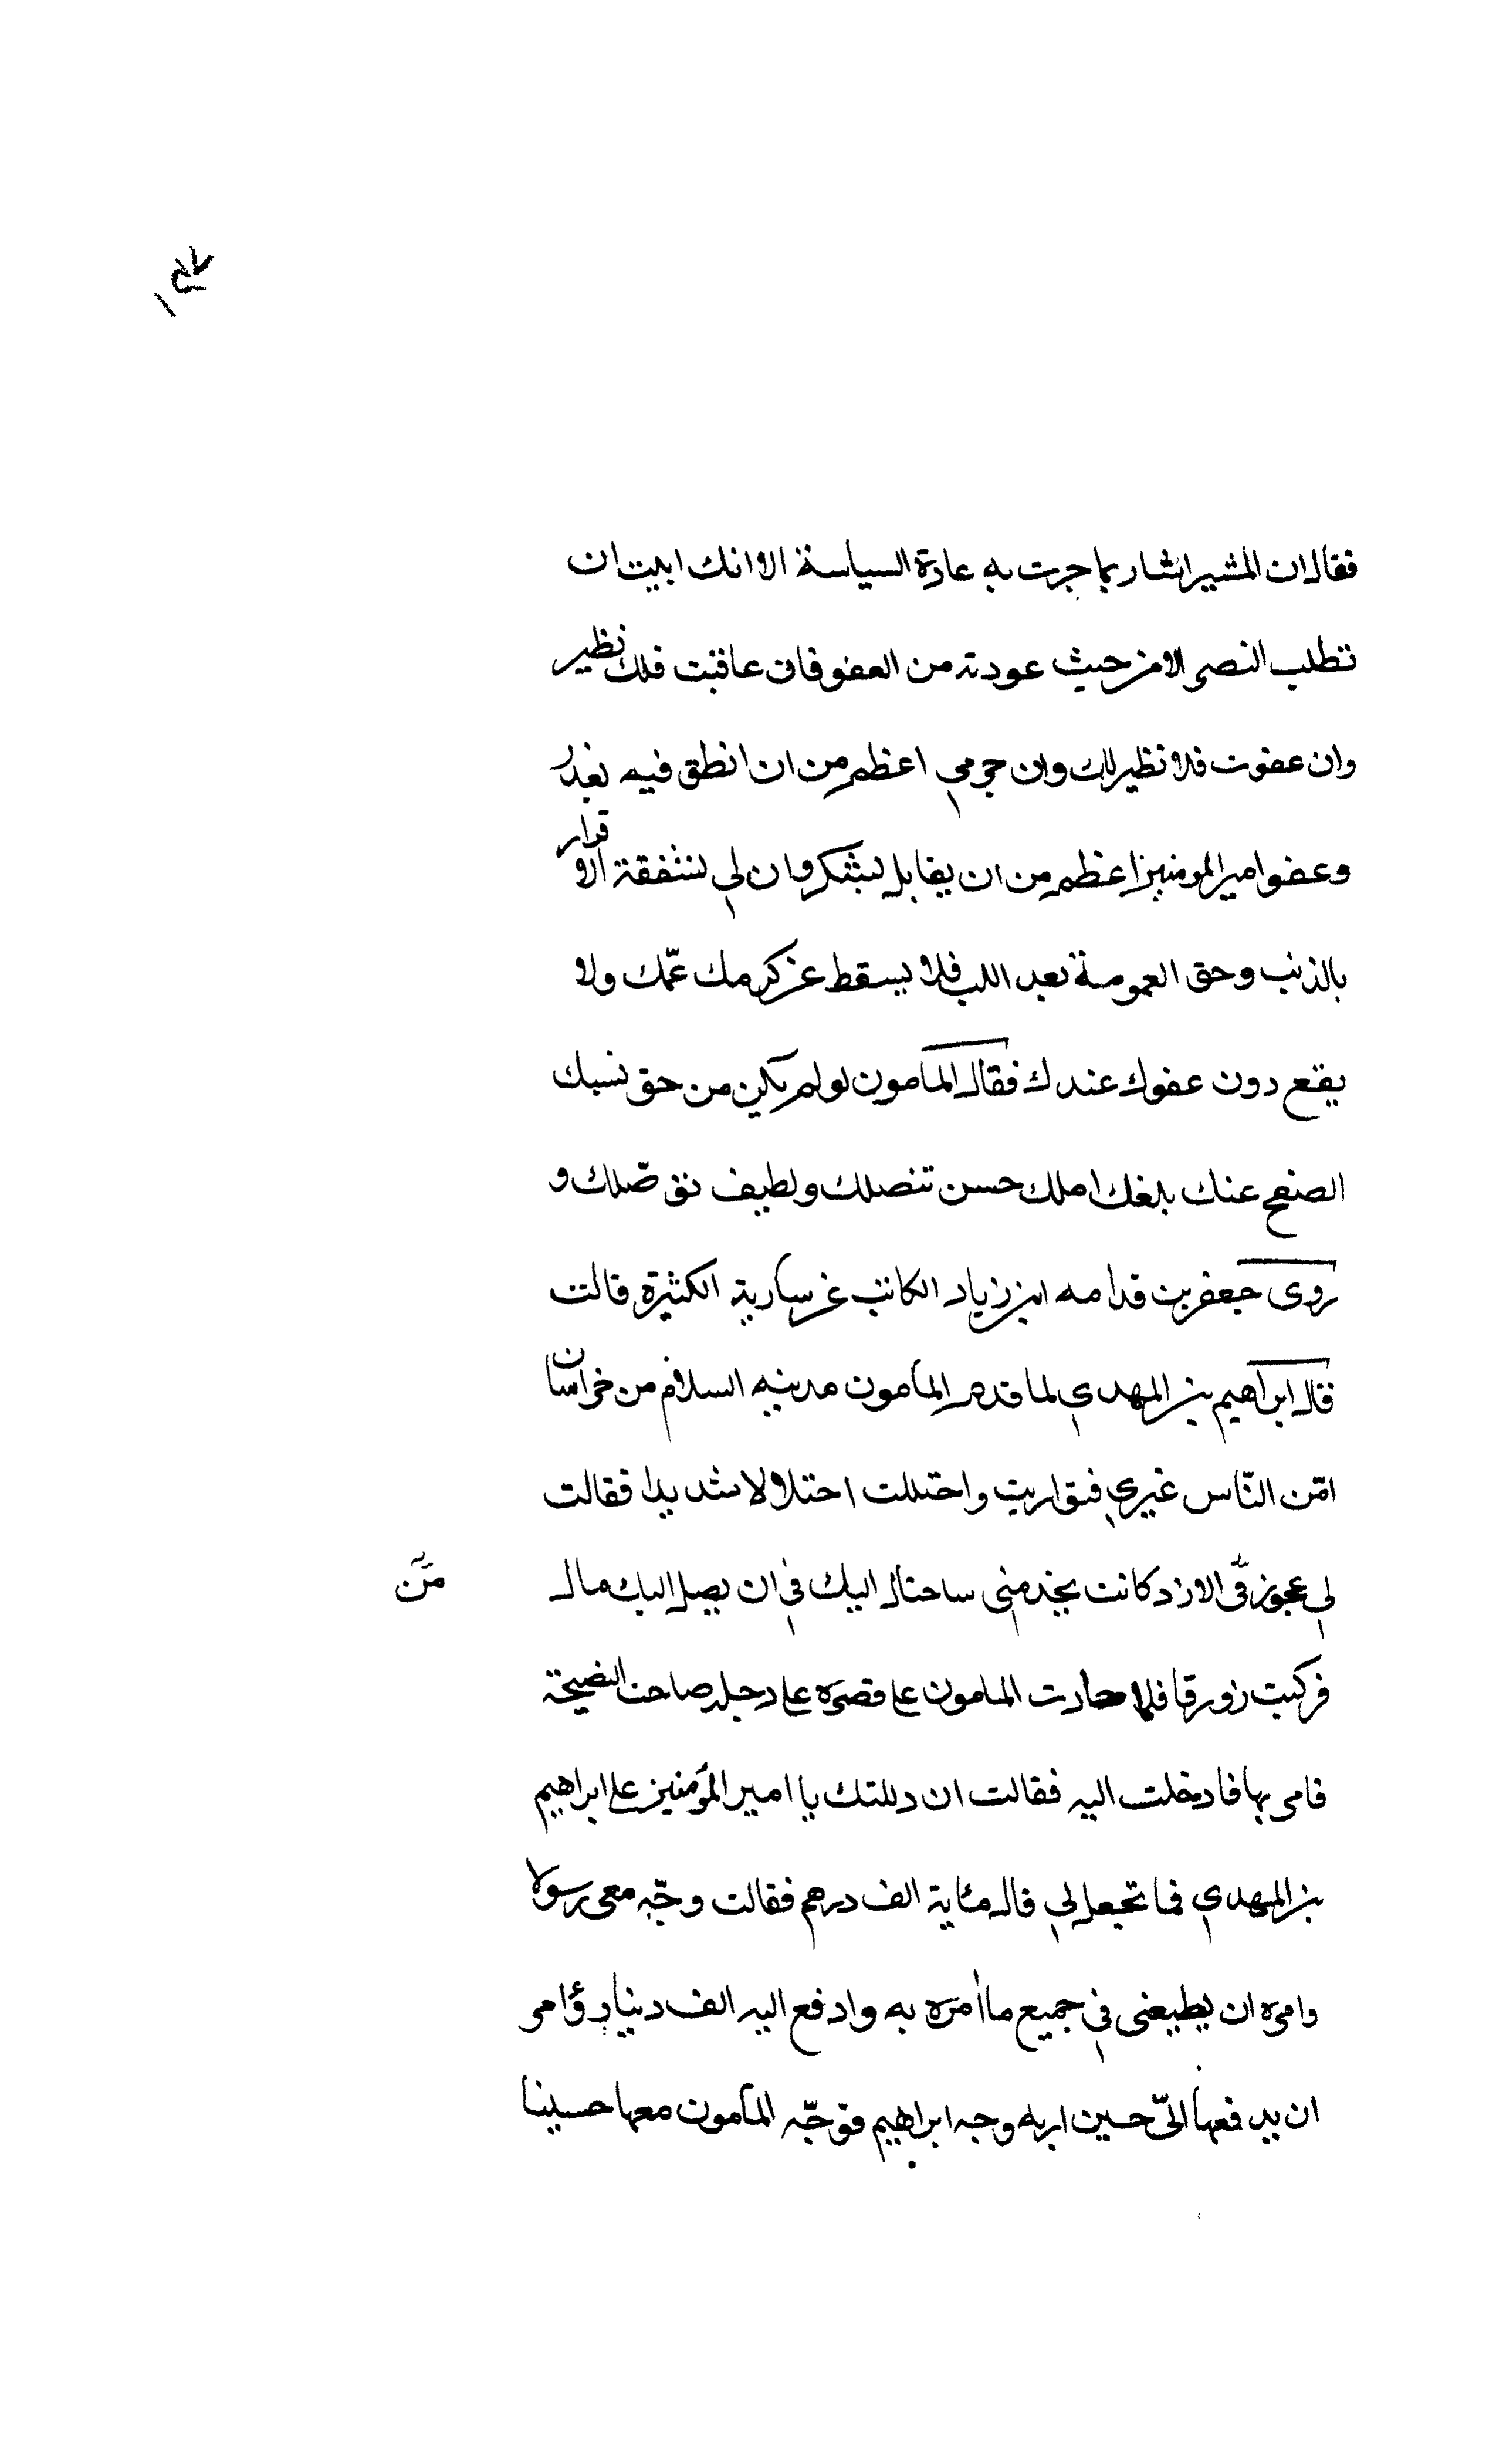 فقال ان المشير اشار بما جرت به عادة السياسة الا انك ابيت ان
تطلب النصر الا من حيث عودته من العفو فان عاقبت فلك نظير
وان عفوت فلا نظير لك وان جرمي اعظم من ان انطق فيه بعذر
وعفو امير المومنين اعظم من ان يقابل بشكر وان لي لشفقة الاقرار
بالذنب وحق العمومة بعد الاب فلا يسقط عن كرمك عمّك ولا
يقع دون عفوك عندك فقال المامون لو لم يكن من حق نسبك
الصفح عنك بلغك املك حسن تنصلك ولطيف توصّلك و
روى جعفر بن قدامه ابن زياد الكاتب عن سارية الكثيرة قالت
قال ابراهيم بن المهدي لما قدم المأمون مدينه السلام من خراسان
امّن النّاس غيري فتواريت واختللت اختلالا شديدا فقالت
لي عجوز في الازد كانت بخدمتي ساحتال اليك في ان يصل اليك مال
مَّن
فركبت زورقا فلما حاذت المامون على قصره على دجله صاحت النصيحة
فامر بها فادخلت اليه فقالت ان دللتك يا امير المؤمنين على ابراهيم
بن المهدي فما تجعل لي قال مئاية الف درهم فقالت وجّه معى رسولا
وامره ان يطيعنى في جميع ما أمره به وادفع اليه الف دينار وأمر
ان يدفعها الىّ حين اريه وجه ابراهيم فوجّه المأمون معها حسينا